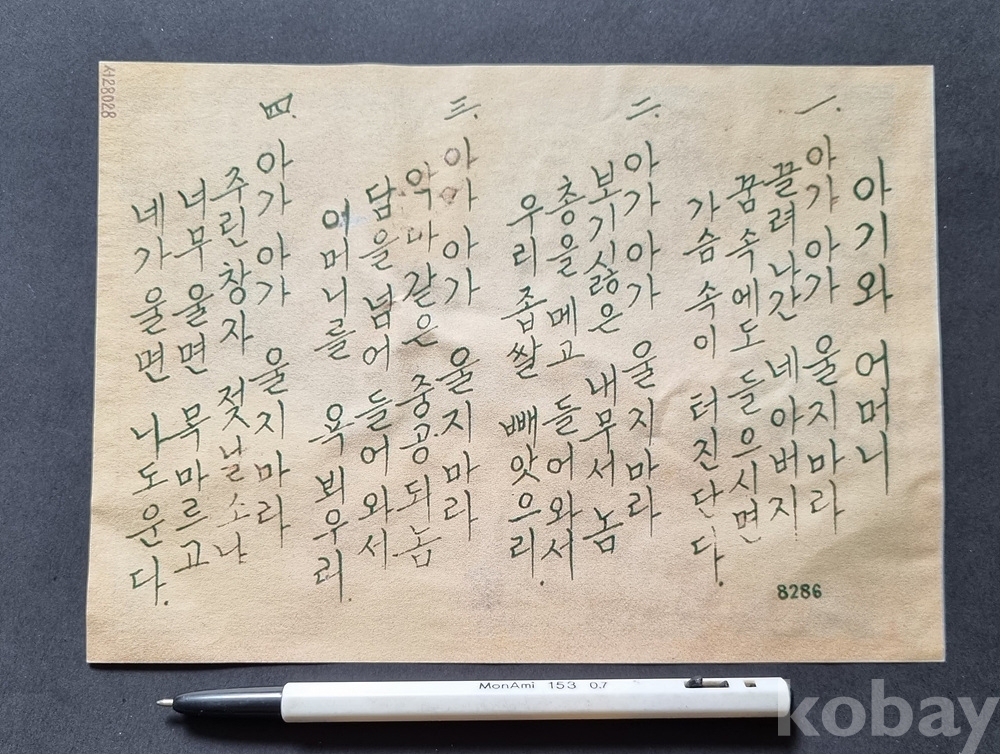 아기와 어머니
一.
아가 아가 울지마라
끌려나간 네아버지
꿈속에도 들으시면
가슴속이 터진단다.
二.
아가 아가 울지마라
보기싫은 내무서 놈
총을 메고 들어와서
우리 좁쌀 빼앗으리.
三.
아가 아가 울지마라
악마같은 중공되놈
담을 넘어 들어와서
어머니를 욕뵈우리.
四.
아가 아가 울지마라
주린 창자 젖날소냐
너무 울면 목마르고
네가 울면 나도운다.
8286
서28028
MonAmi 153 0.7
kobay